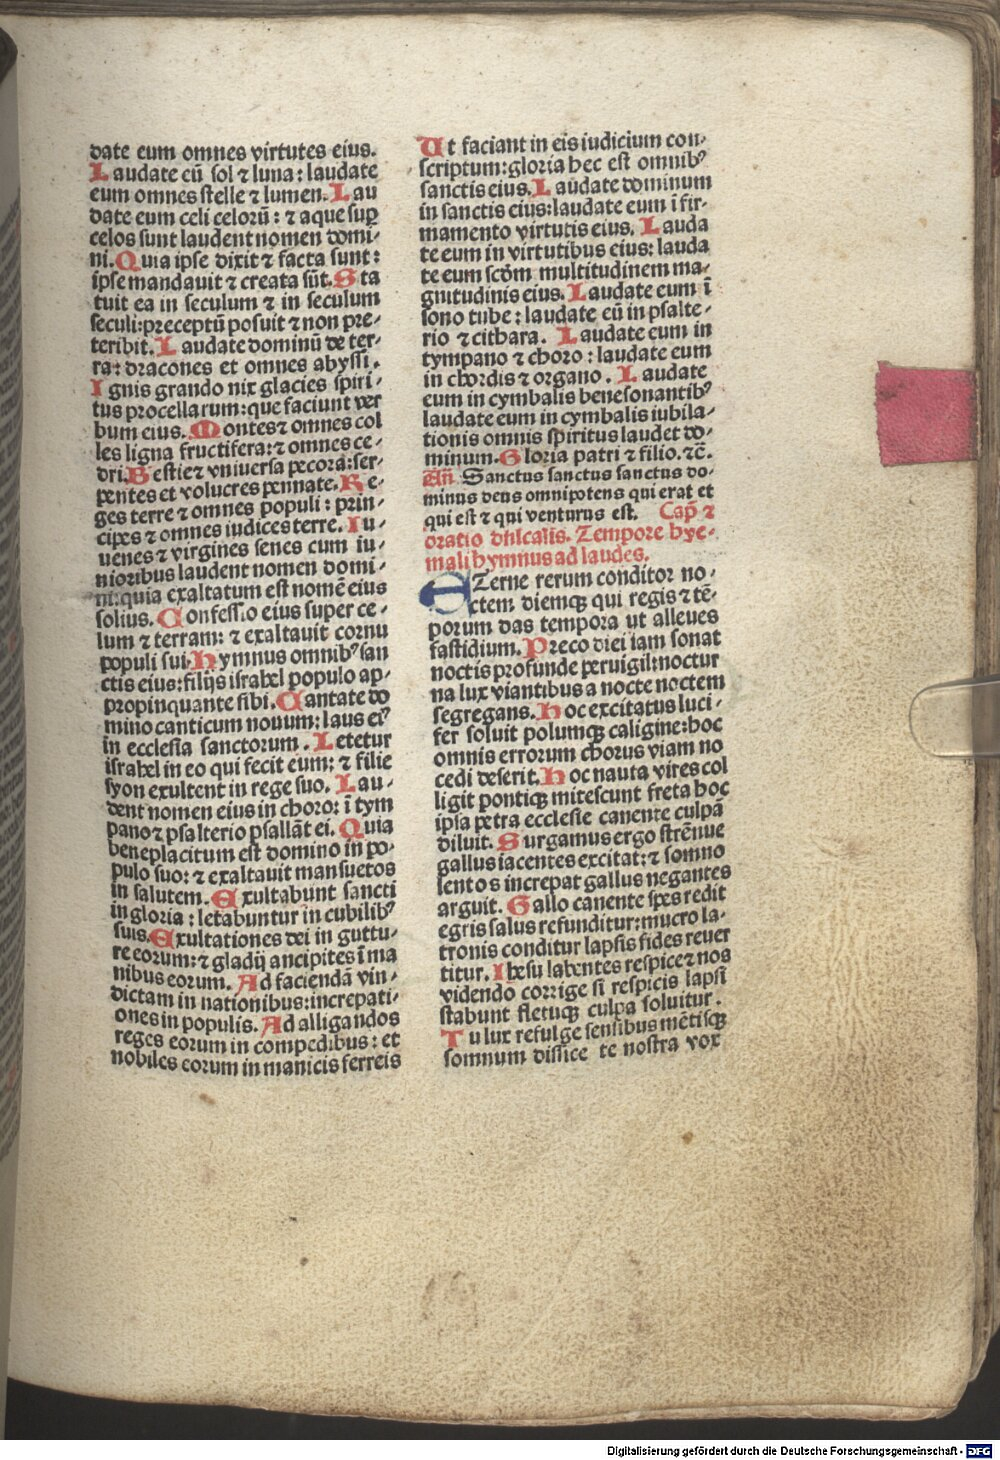 date eum omnes virtutes eius.
Laudate eū sol ⁊ luna: laudate
eum omnes stelle ⁊ lumen. Lau
date eum celi celorū: ⁊ aque suꝑ
celos sunt laudent nomen domi-
ni. Quia ipse dixit ⁊ facta sunt:
ipse mandauit ⁊ creata sūt. Sta
tuit ea in seculum ⁊ in seculum
seculi: preceptū posuit ⁊ non pre-
teribit. Laudate dominū de ter-
ra: dracones et omnes abyssi.
Ignis grando nix glacies spiri-
tus procellarum: que faciunt ver
bum eius. Montes ⁊ omnes col
les ligna fructifera: ⁊ omnes ce-
dri. Bestie ⁊ vniuersa pecora: ser-
pentes et volucres pennate. Re-
ges terre ⁊ omnes populi: prin-
cipes ⁊ omnes iudices terre. Iu-
uenes ⁊ virgines senes cum iu-
nioribus laudent nomen domi-
ni: quia exaltatum est nomē eius
solius. Confessio eius super ce-
lum ⁊ terram: ⁊ exaltauit cornu
populi sui. Hymnus omnibꝰ san
ctis eius: filijs israhel populo ap-
propinquante sibi. Cantate do
mino canticum nouum: laus eiꝰ
in ecclesia sanctorum. Letetur
israhel in eo qui fecit eum: ⁊ filie
syon exultent in rege suo. Lau-
dent nomen eius in choro: ī tym
pano ⁊ psalterio psallāt ei. Quia
beneplacitum est domino in po-
pulo suo: ⁊ exaltauit mansuetos
in salutem. Exultabunt sancti
in gloria: letabuntur in cubilibꝰ
suis. Exultationes dei in guttu-
re eorum: ⁊ gladij ancipites ī ma
nibus eorum. Ad faciendā vin-
dictam in nationibus: increpati-
ones in populis. Ad alligandos
reges eorum in compedibus: et
nobiles eorum in manicis ferreis
Ut faciant in eis iudicium con-
scriptum: gloria hec est omnibꝰ
sanctis eius. Laudate dominum
in sanctis eius: laudate eum ī fir-
mamento virtutis eius. Lauda
te eum in virtutibus eius: lauda
te eum scdm̄ multitudinem ma-
gnitudinis eius. Laudate eum ī
sono tube: laudate eū in psalte-
rio ⁊ cithara. Laudate eum in
tympano ⁊ choro: laudate eum
in chordis ⁊ organo. Laudate
eum in cymbalis benesonantibꝰ
laudate eum in cymbalis iubila-
tionis omnis spiritus laudet do-
minum. Gloria patri ⁊ filio. ⁊c̄.
Añ Sanctus sanctus sanctus do-
minus deus omnipotens qui erat et
qui est ⁊ qui venturus est. Cap̄ ⁊
oratio dn̄icalis. Tempore hye-
mali hymnus ad laudes.
ETerne rerum conditor no-
ctem diemqꝫ qui regis ⁊ tē-
porum das tempora ut alleues
fastidium. Preco diei iam sonat
noctis profunde peruigil: noctur
na lux viantibus a nocte noctem
segregans. Hoc excitatus luci-
fer soluit polumqꝫ caligine: hoc
omnis errorum chorus viam no
cedi deserit. Hoc nauta vires col
ligit pontiqꝫ mitescunt freta hoc
ipsa petra ecclesie canente culpā
diluit. Surgamus ergo strēnue
gallus iacentes excitat: ⁊ somno
lentos increpat gallus negantes
arguit. Gallo canente spes redit
egris salus refunditur: mucro la-
tronis conditur lapsis fides reuer
titur. Ihesu labentes respice ⁊ nos
videndo corrige si respicis lapsi
stabunt fletuqꝫ culpa soluitur.
Tu lux refulge sensibus mētisqꝫ
somnum discice te nostra vox
Digitalisierung gefördert durch die Deutsche Forschungsgemeinschaft - DFG